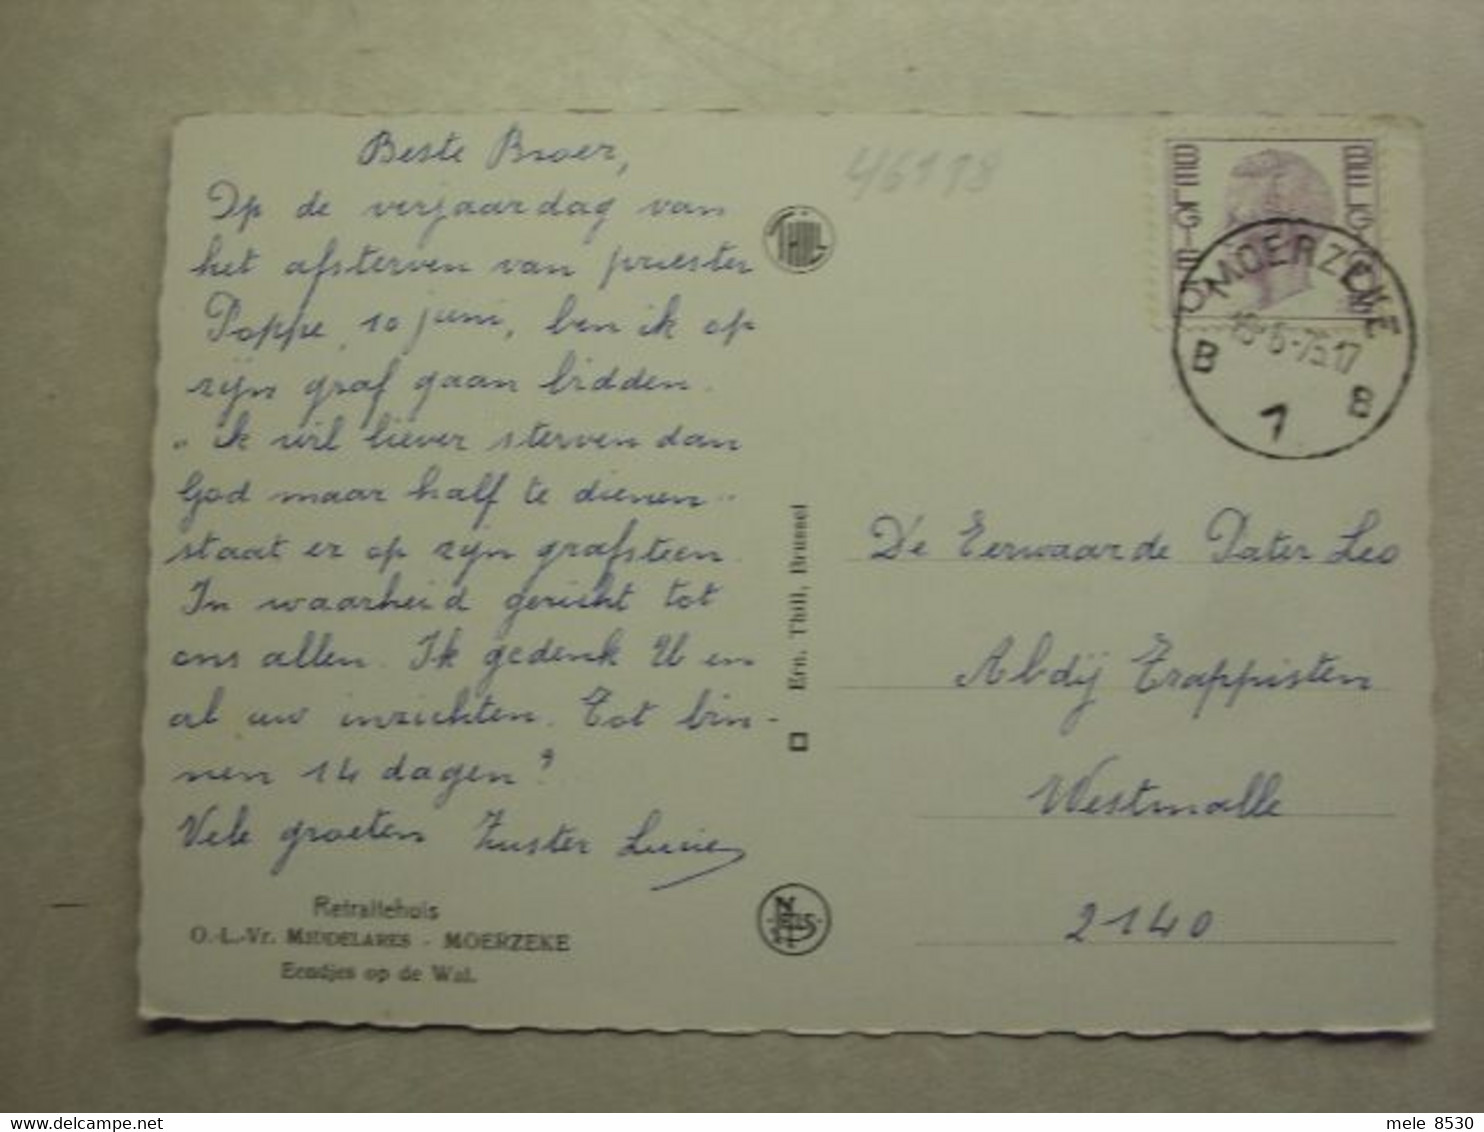 Beste Broer,
Op de verjaardag van
het afsterven van priester
Poppe, 10 juni, ben ik op
zijn graf gaan bidden.
„ ik wil liever sterven dan
God maar half te dienen "
staat er op zijn grafsteen.
In waarheid gericht tot
ons allen. Ik gedenk U en
al uw inzichten. Tot bin-
nen 14 dagen?
Vele groeten Zuster Lucie
Retraitehuis
O.-L.-Vr. MIDDELARES - MOERZEKE
Eendjes op de Wal.
THILL
NELS
Ern. Thill, Brussel
46198
BELGIE
BELGIQUE
MOERZEKE
B
B
1
De Eerwaarde Pater Leo
Abdij Trappisten
Westmalle
2140
mele 8530